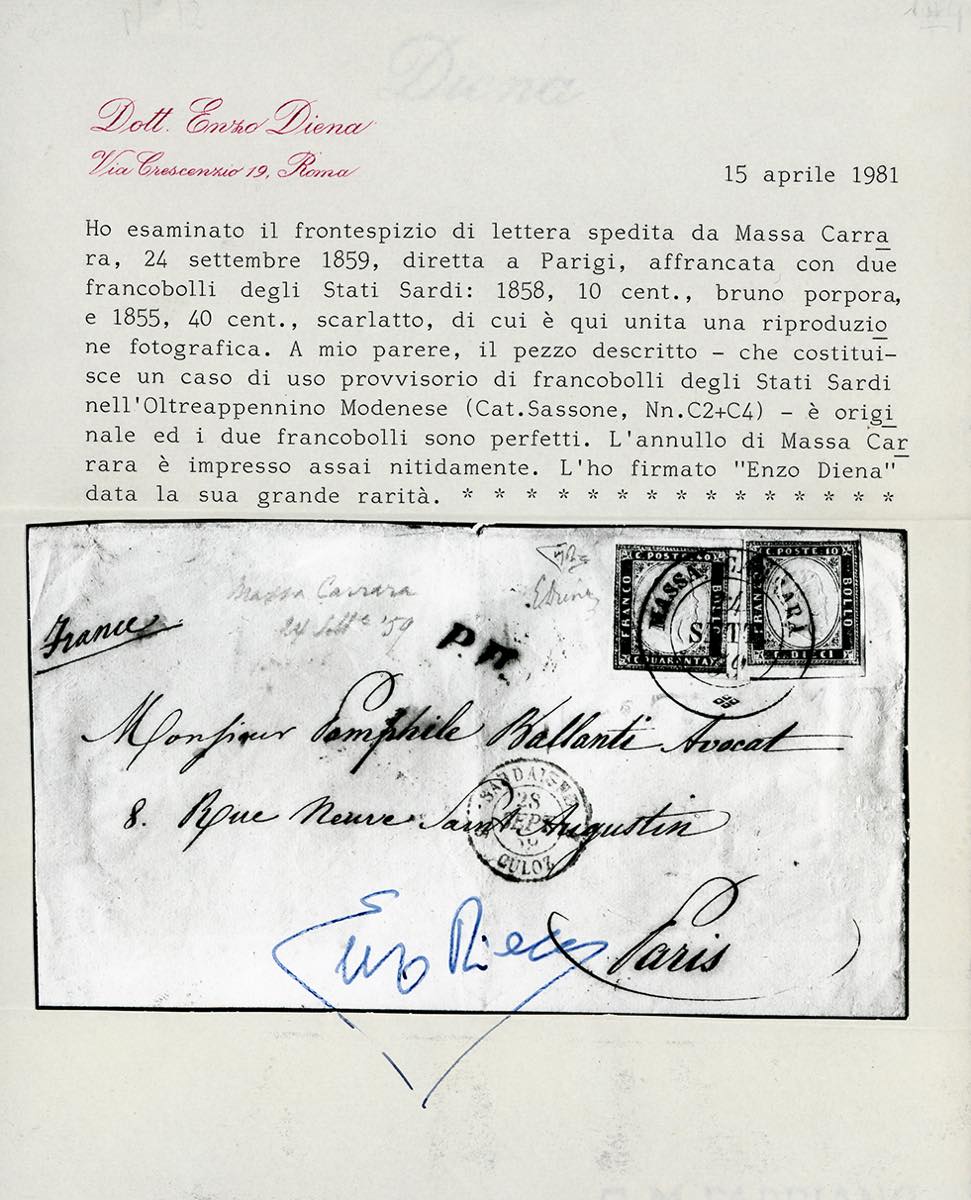 Diena
Dott. Enzo Diena
Via Crescenzio 19, Roma
15 aprile 1981
Ho esaminato il frontespizio di lettera spedita da Massa Carra
ra, 24 settembre 1859, diretta a Parigi, affrancata con due
francobolli degli Stati Sardi: 1858, 10 cent., bruno porpora,
e 1855, 40 cent., scarlatto, di cui è qui unita una riproduzio
ne fotografica. A mio parere, il pezzo descritto - che costitui-
sce un caso di uso provvisorio di francobolli degli Stati Sardi
nell'Oltreappennino Modenese (Cat.Sassone, Nn.C2+C4) - è origi
nale ed i due francobolli sono perfetti. L'annullo di Massa Car
rara è impresso assai nitidamente. L'ho firmato "Enzo Diena"
data la sua grande rarità. * * * * * * * * * * * * * * * *
C. POSTE 40
FRANCO
BOLLO
C. QUARANTA
C. POSTE 10
FRANCO
BOLLO
C. DIECI
MASSA
RARA
Massa Carrara
24 Sett.e '59
EDiena
France
P.D.
Monsieur Pamphile Ballanti Avocat
8. Rue Neuve Saint Augustin
28
SEPT
59
CULOZ
Paris
Enzo Diena